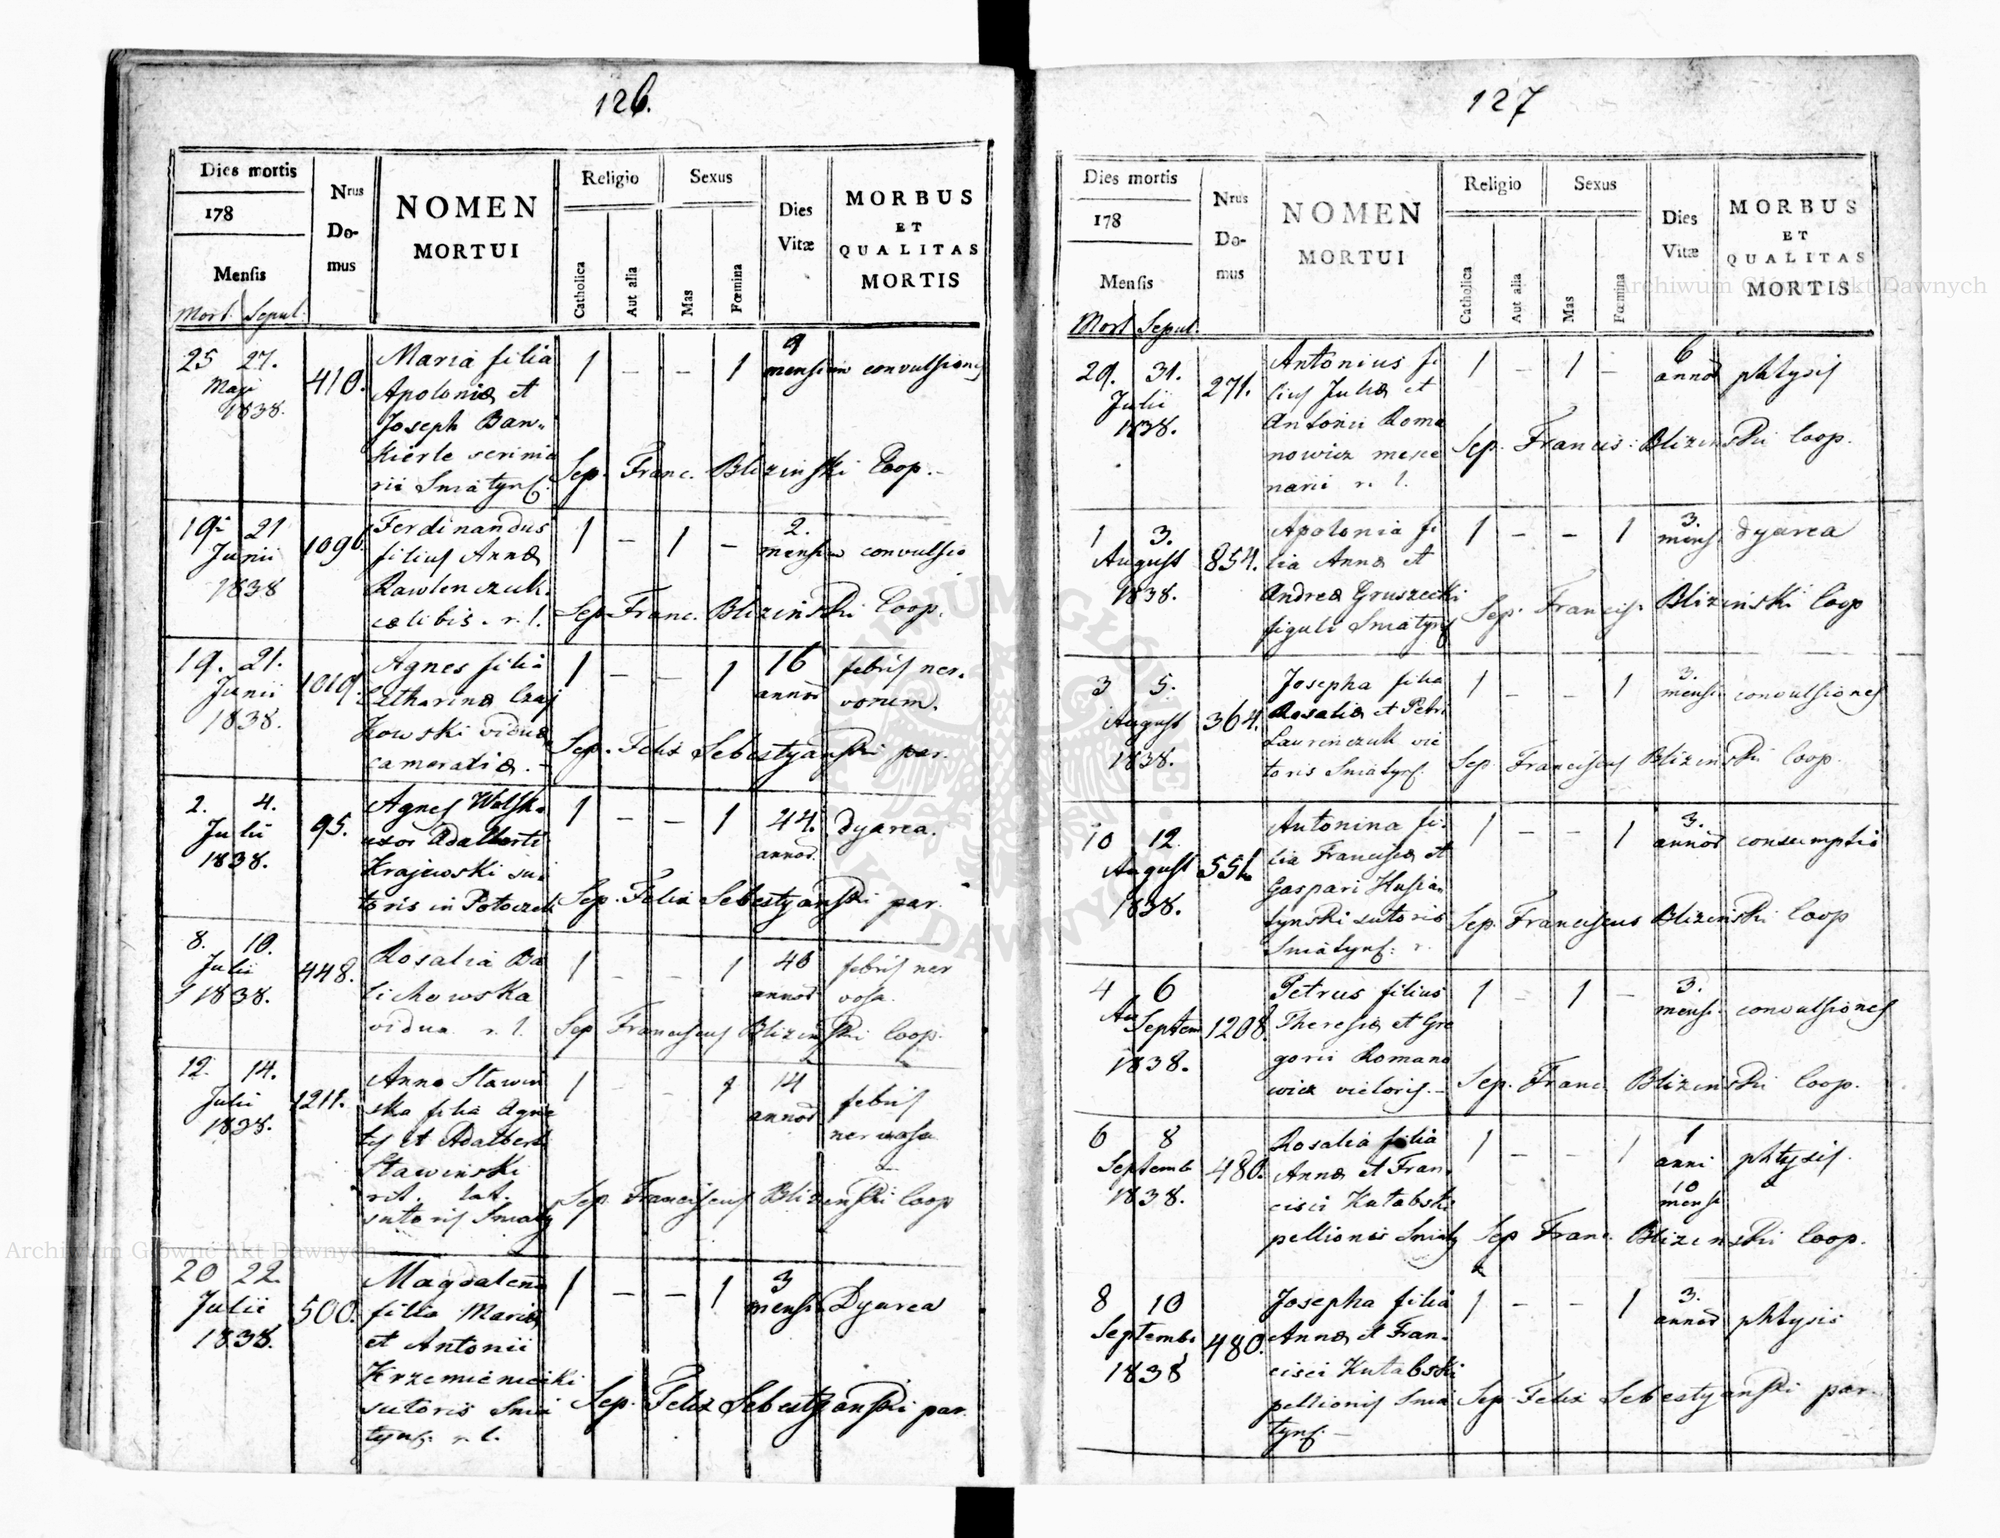 126.
Dies mortis
Nrus Domus
NOMEN MORTUI
Religio
Sexus
Dies Vitæ
MORBUS ET QUALITAS MORTIS
178
Mensis
Catholica
Aut alia
Mas
Fœmina
Mort. Sepul.
25 27. Maji 1838.
410.
Maria filia
Apoloniæ et
Joseph Ban-
kierle scrinia
rii Sniatyns.
1 – – 1
9 mensium convulsiones
Sep. Franc. Blizinski Coop.
19 21 Junii 1838
1096.
Ferdinandus
filius Annæ
Rawlenczuk
cælibis. r. l.
1 – 1 –
2. mensium convulsio
Sep. Franc. Blizinski Coop.
19. 21. Junii 1838.
1019.
Agnes filia
Catharinæ Czaj
kowski viduæ
cameratiæ.
1 – – 1
16 annor febris ner-
vorum.
Sep. Felix Sebestyanski par.
2. 4. Julii 1838.
95.
Agnes Wolska
uxor Adalberti
Krajewski su-
toris in Potoczek
1 – – 1
44. annor. dyarea.
Sep. Felix Sebestyanski par.
8. 10. Julii 1838.
448.
Rosalia Ba
lichowska
vidua r. l.
1 – – 1
40 annor febris ner
vosa.
Sep Franciscus Blizinski Coop.
12. 14. Julii 1838.
1211.
Anna Stawin
ska filia Agne
tis et Adalberti
Stawinski
rit. lat.
sutoris Sniaty
1 – – 1
14 annor febris
nervosa
Sep. Franciscus Blizinski Coop
20 22. Julii 1838.
500.
Magdalena
filia Mariæ
et Antonii
Krzemieniecki
sutoris Snia
tyns. r. l.
1 – – 1
3 mensi. Dyarea
Sep. Felix Sebestyanski par.
127
Dies mortis
Nrus Domus
NOMEN MORTUI
Religio
Sexus
Dies Vitæ
MORBUS ET QUALITAS MORTIS
178
Mensis
Catholica
Aut alia
Mas
Fœmina
Mort Sepul.
29. 31. Julii 1838.
271.
Antonius fi
lius Juliæ et
Antonii Roma
nowicz merce
narii r. l.
1 – 1 –
6 annor phtysis
Sep. Francis: Blizinski Coop.
1 3. August 1838.
854.
Apolonia fi
lia Annæ et
Andreæ Gruszecki
figuli Sniatyns
1 – – 1
3. mens. dyarea
Sep. Francis. Blizinski Coop
3 5. August 1838.
364.
Josepha filia
Rosaliæ et Petri
Laurenczuk vie
toris Sniatyns.
1 – – 1
3. mensi. convulsiones
Sep. Franciscus Blizinski Coop.
10 12. August 1838.
Antonina fi-
lia Franciscæ et
Gaspari Husia
tynski sutoris
Sniatyns. r.
1 – – 1
3. annor consumptio
Sep. Franciscus Blizinski Coop
4 6 Septem 1838.
1208.
Petrus filius
Theresiæ et Gre
gorii Romano
wicz vietoris.
1 – 1 –
3. mensi. convulsiones
Sep. Franc. Blizinski Coop.
6 8 Septemb 1838.
480.
Rosalia filia
Annæ et Fran-
cisci Kutabski
pellionis Sniaty
1 – – 1
1 anni 10 mensi phtysis.
Sep Franc. Blizinski Coop.
8 10 Septemb. 1838
480.
Josepha filia
Annæ et Fran-
cisci Kutabski
pellionis Snia
tyns.
1 – – 1
3. annor phtysis
Sep. Felix Sebestyanski par.
Archiwum Główne Akt Dawnych
Archiwum Główne Akt Dawnych
ARCHIWUM GŁÓWNE AKT DAWNYCH